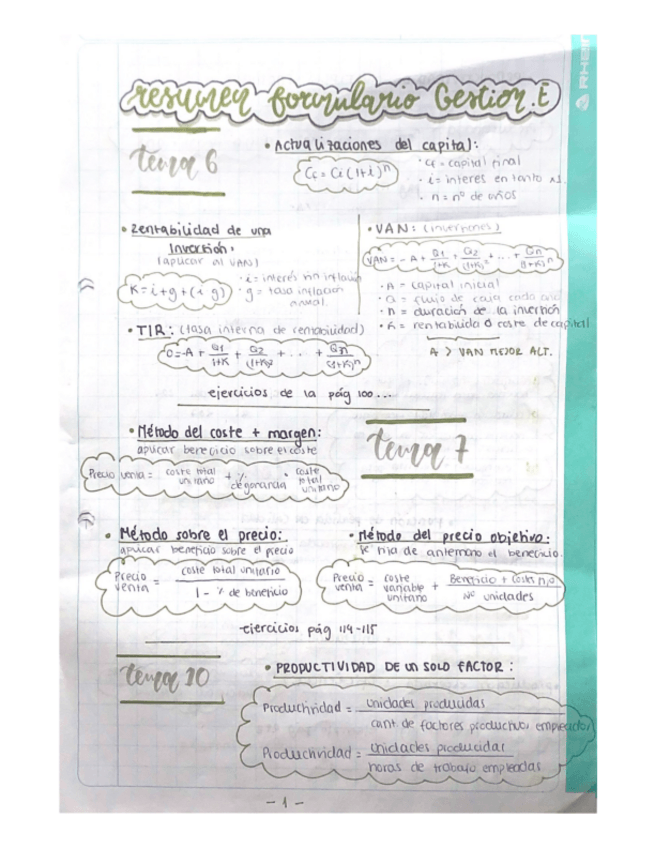 resumen formulario Gestion.E
tema 6
• Actualizaciones del capital:
Cf = Ci (1+i)ⁿ
· Cf = capital final
· i = interes en tanto x1.
· n = nº de años
• Rentabilidad de una
Inversión.
(aplicar al VAN)
K = i+g+(i·g)
· i = interés sin inflacion
· g = tasa inflacion
anual.
• VAN: (inversiones)
VAN = -A + Q1/1+K + Q2/(1+K)² + ... + Qn/(1+K)ⁿ
· A = capital inicial
· Q = flujo de caja cada año
· n = duración de la inversión
· K = rentabilida o coste de capital
A > VAN MEJOR ALT.
• TIR: (tasa interna de rentabilidad)
O = -A + Q1/1+K + Q2/(1+K)² + ... + Qn/(1+K)ⁿ
ejercicios de la pág 100...
tema 7
• Método del coste + margen:
aplicar beneficio sobre el coste
Precio venta = coste total unitario + % de ganancia · coste total unitario
• Método sobre el precio:
aplicar beneficio sobre el precio
Precio venta = coste total unitario / 1 - % de beneficio
• Método del precio objetivo:
de antemano el beneficio.
Precio venta = coste variable unitario + Beneficio + Costes / Nº unidades
ejercicios pág 114-115
tema 10
• PRODUCTIVIDAD DE UN SOLO FACTOR:
Productividad = unidades producidas / cant de factores productivos empleados
Productividad = unidades producidas / horas de trabajo empleadas
- 1 -